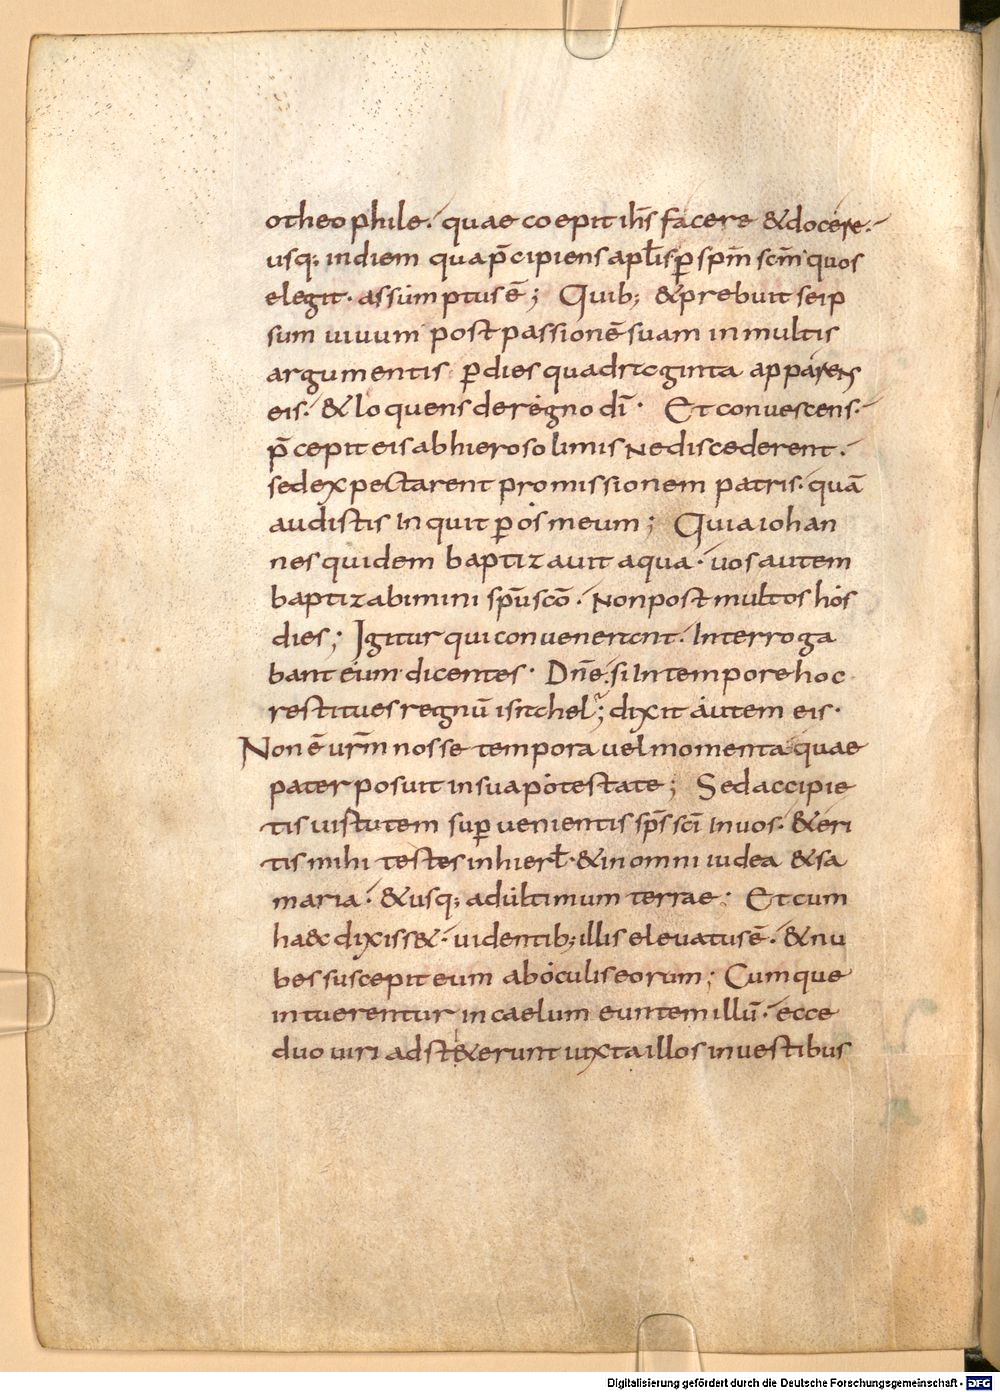 otheophile· quae coepit ih̅s facere &docere·
usq; indiem qua p̅cipiens apl̅is p̲ sp̅m sc̅m quos
elegit· assumptus ē; Quib; &prebuit seip
sum uiuum post passionē suam inmultis
argumentis p̲ dies quadraginta apparens
eis· &loquens deregno dī· Et convescens·
p̅cepit eis abhierosolimis Nediscederent·
sedexpectarent promissionem patris· quā
audistis Inquit p̲ os meum; Quia iohan
nes quidem baptizauit aqua· uos autem
baptizabimini sp̅u scō· Nonpost multos hos
dies; Igitur qui convenerant· Interroga
bant eum dicentes· Dn̅e si Intempore hoc
restitues regnū isrtchel; dixit autem eis·
Non ē ur̅m nosse tempora uel momenta quae
pater posuit insua potestate; Sedaccipie
tis uirtutem sup̲uenientis sp̅s scī Inuos· &eri
tis mihi testes inhierł· &inomni iudea &sa
maria· &usq; adultimum terrae· Et cum
haec dixiss&· uidentib; illis eleuatus ē· &nu
bes suscepit eum aboculis eorum; Cumque
intuerentur incaelum euntem illū· ecce
duo uiri adst&erunt iuxta illos inuestibus
Digitalisierung gefördert durch die Deutsche Forschungsgemeinschaft - DFG